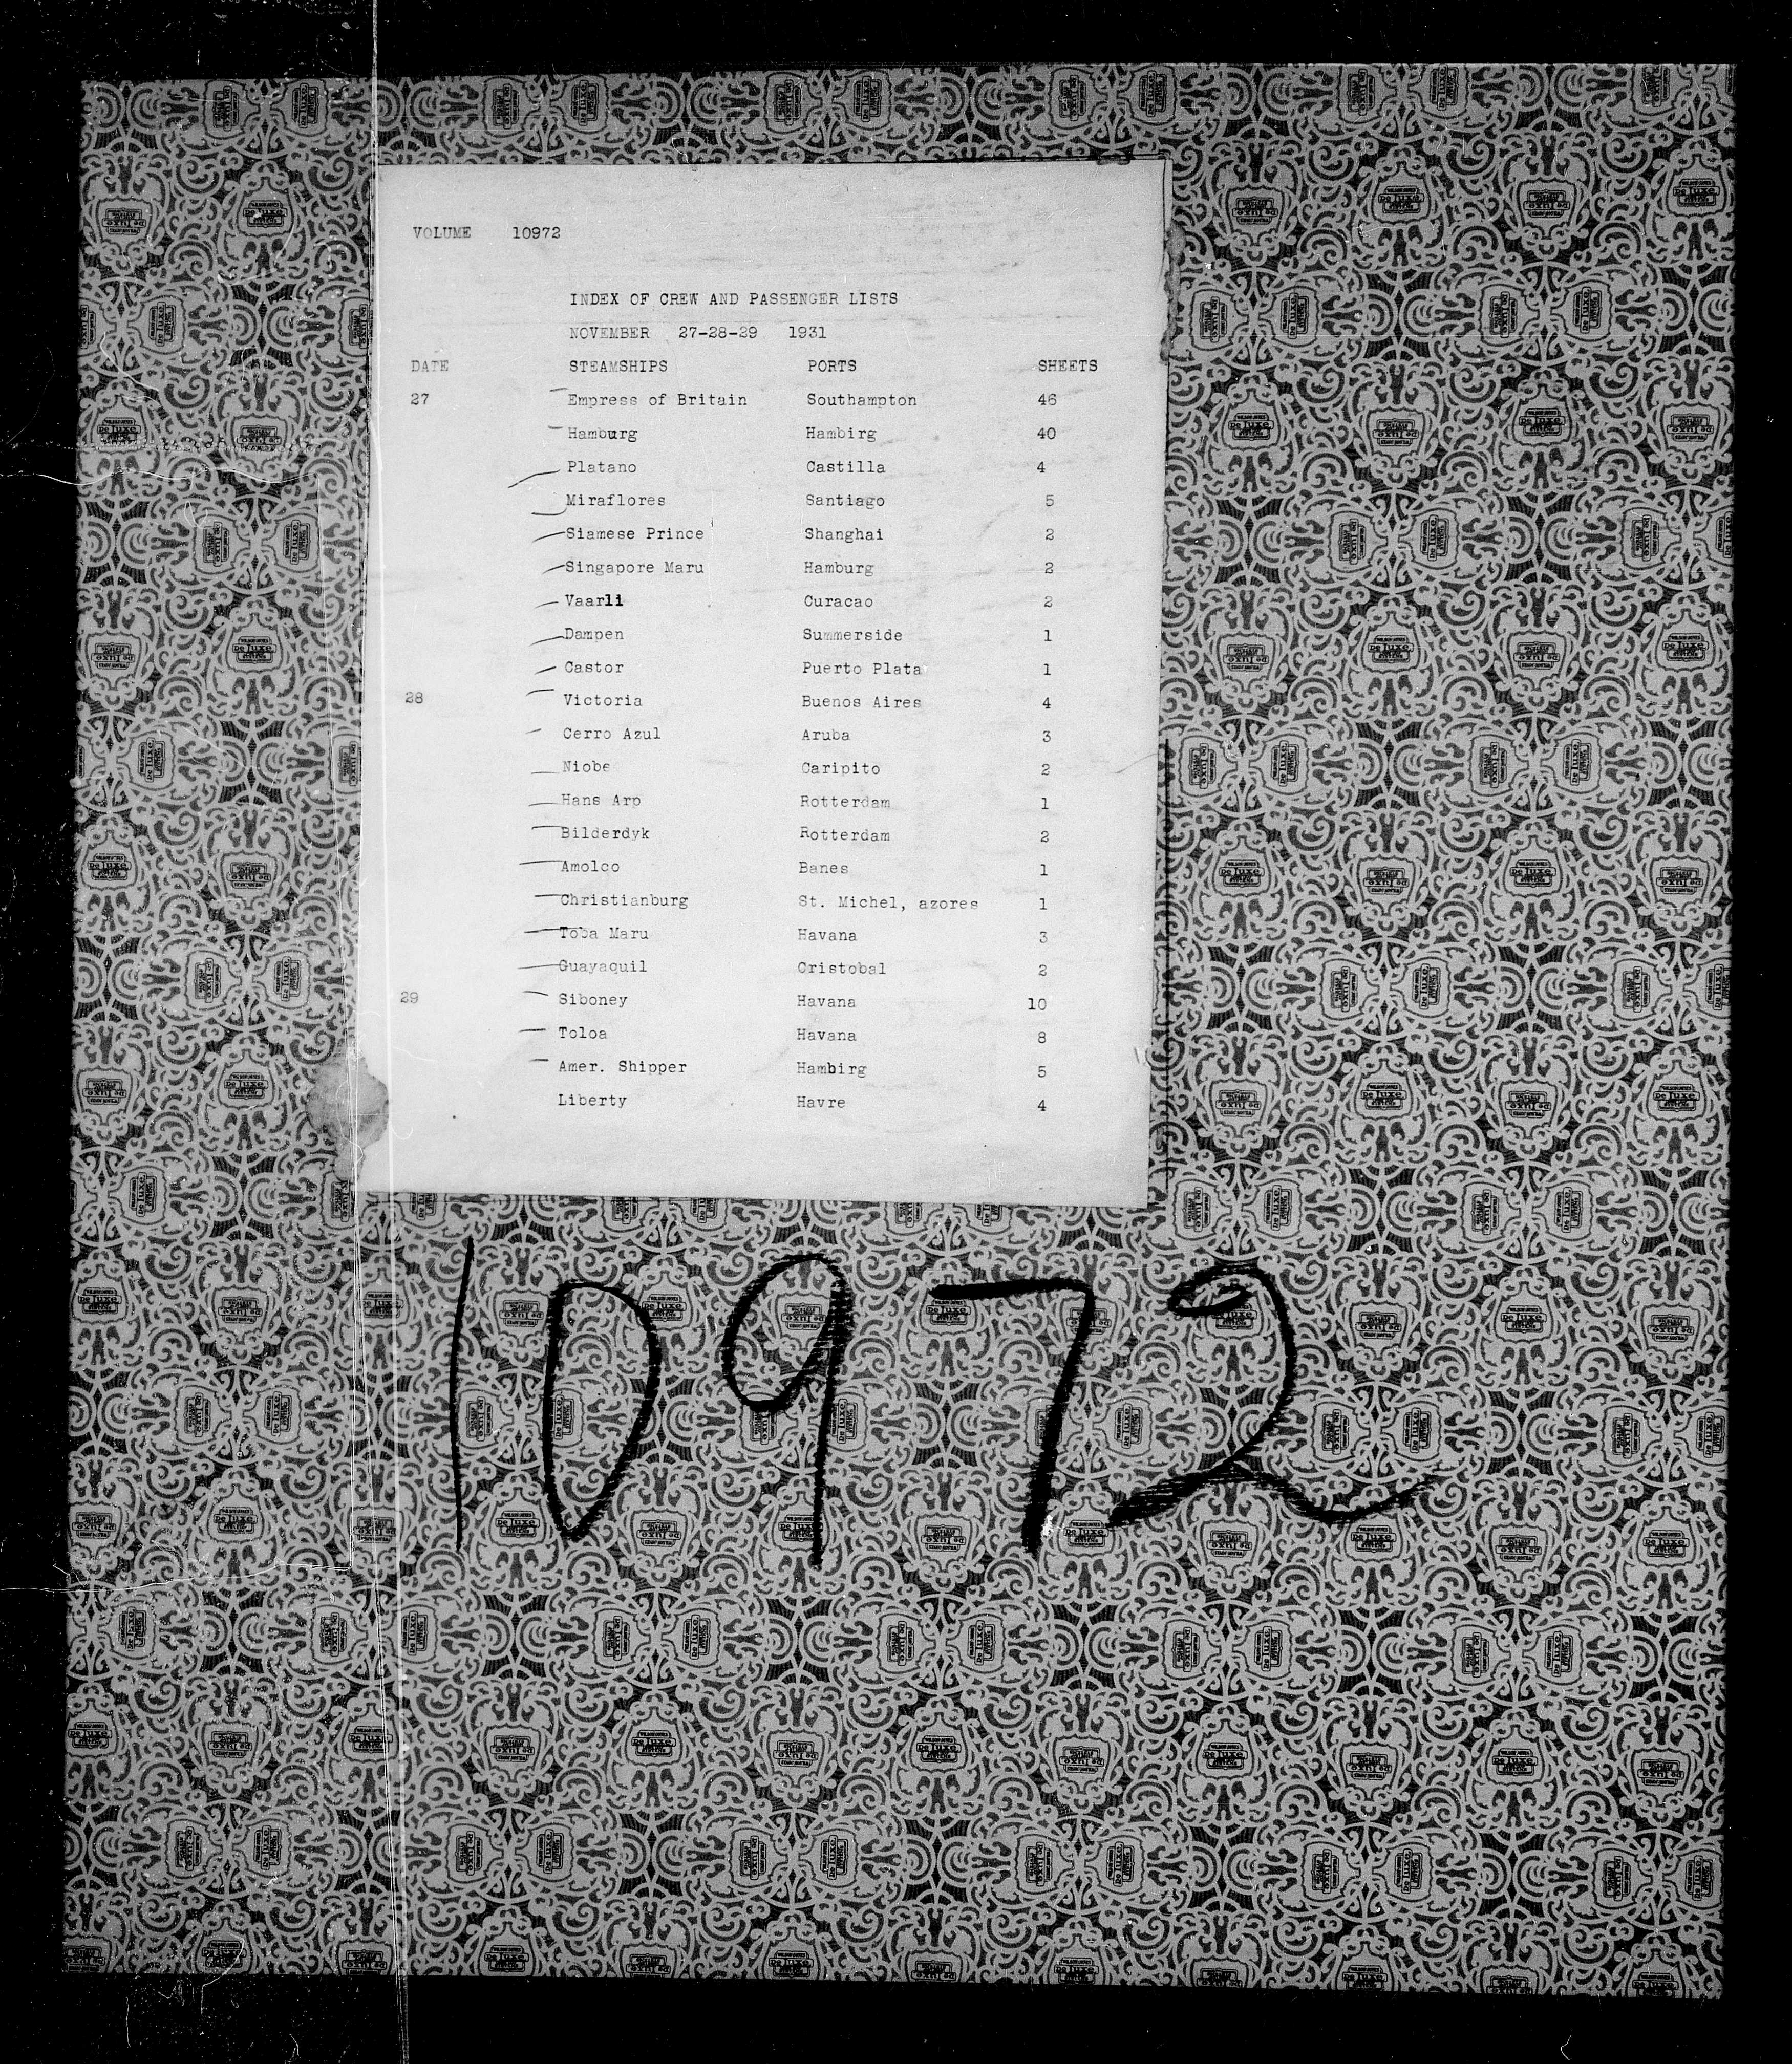 VOLUME 10972
INDEX OF CREW AND PASSENGER LISTS
NOVEMBER 27-28-29 1931
DATE STEAMSHIPS PORTS SHEETS
27 Empress of Britain Southampton 46
Hamburg Hambirg 40
Platano Castilla 4
Miraflores Santiago 5
Siamese Prince Shanghai 2
Singapore Maru Hamburg 2
Vaarli Curacao 2
Dampen Summerside 1
Castor Puerto Plata 1
28 Victoria Buenos Aires 4
Cerro Azul Aruba 3
Niobe Caripito 2
Hans Arp Rotterdam 1
Bilderdyk Rotterdam 2
Amolco Banes 1
Christianburg St. Michel, azores 1
Toba Maru Havana 3
Guayaquil Cristobal 2
29 Siboney Havana 10
Toloa Havana 8
Amer. Shipper Hambirg 5
Liberty Havre 4
10972